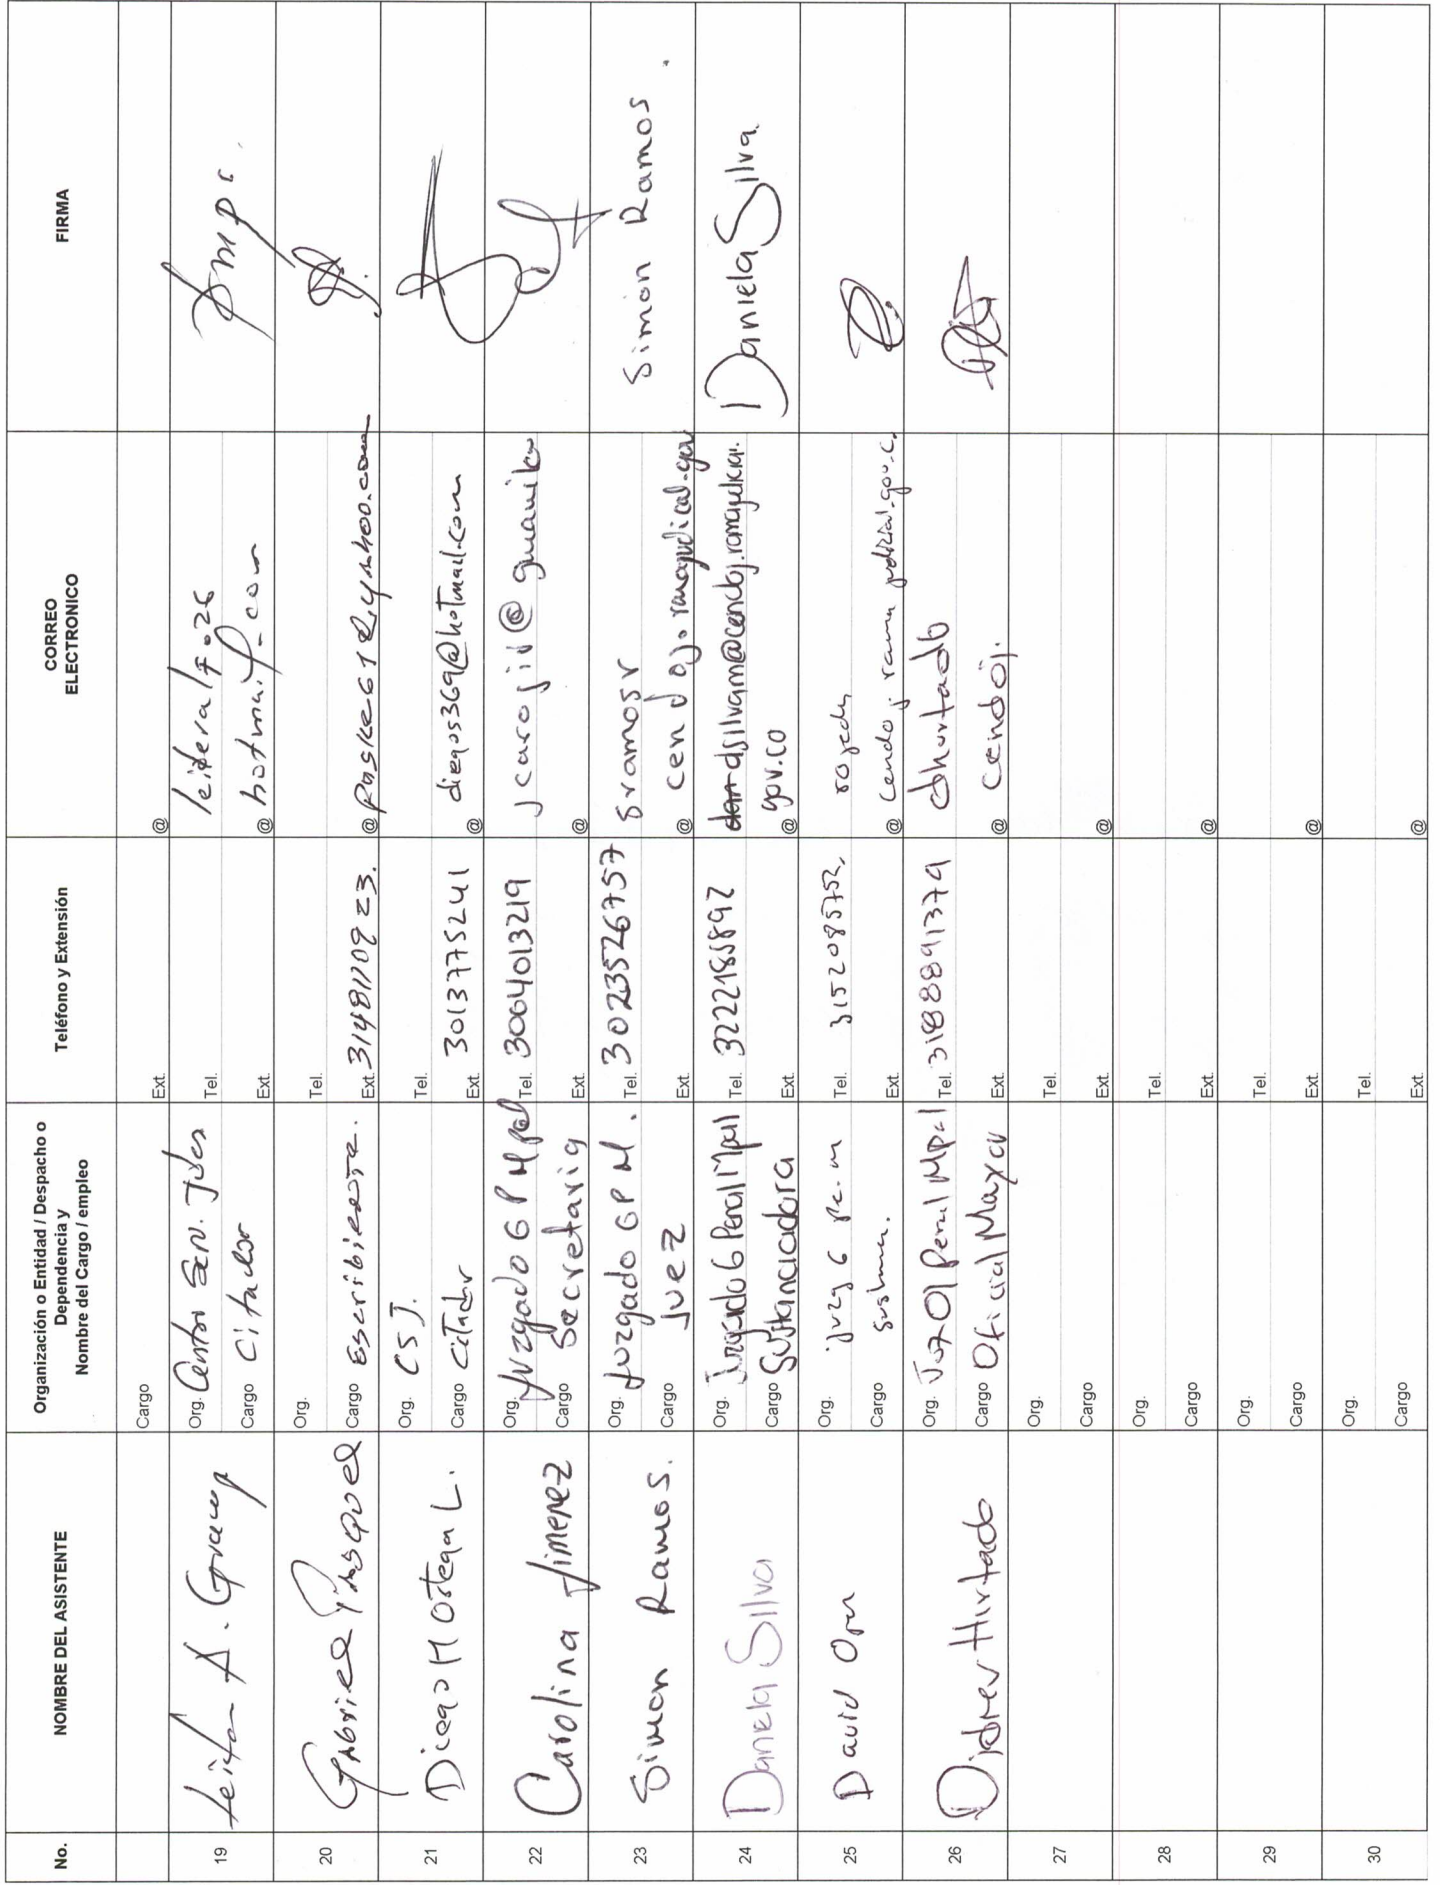 No.
NOMBRE DEL ASISTENTE
Organización o Entidad / Despacho o
Dependencia y
Nombre del Cargo / empleo
Teléfono y Extensión
CORREO
ELECTRONICO
FIRMA
Cargo
Ext.
@
19
A.
Org. Serv.
Cargo Citador
Tel.
Ext.
hotmail.com
@
20
Gabriel
Org.
Cargo Escribiente.
Tel.
Ext. 3148110923.
@
21
Diego M Ortega L.
Org. CSJ.
Cargo Citador
Tel.
Ext. 3013775241
diegos369@hotmail.com
@
22
Carolina Jimenez
Org. Juzgado 6 P Mpal
Cargo Secretaria
Tel. 3004013219
Ext
jcarojil@
@
23
Simon Ramos.
Org. Juzgado 6 P M.
Cargo Juez
Tel. 3023526757
Ext.
sramosr
@ cendoj.ramajudicial.gov
Simon Ramos
24
Daniela Silva
Org. Juzgado 6 Penal Mpal
Cargo Sustanciadora
Tel. 3222185892
Ext
dsilvam@cendoj.ramajudicial.
@ gov.co
Daniela Silva
25
David
Org. juzg 6
Cargo
Tel. 3152085752,
Ext.
@ cendoj rama judicial.gov.c.
26
Hurtado
Org. Juz 01 Penal Mpal
Cargo Oficial Mayor
Tel. 3188891379
Ext.
dhurtado
@ cendoj.
27
Org.
Cargo
Tel.
Ext.
@
28
Org.
Cargo
Tel.
Ext.
@
29
Org.
Cargo
Tel.
Ext.
@
30
Org.
Cargo
Tel.
Ext.
@